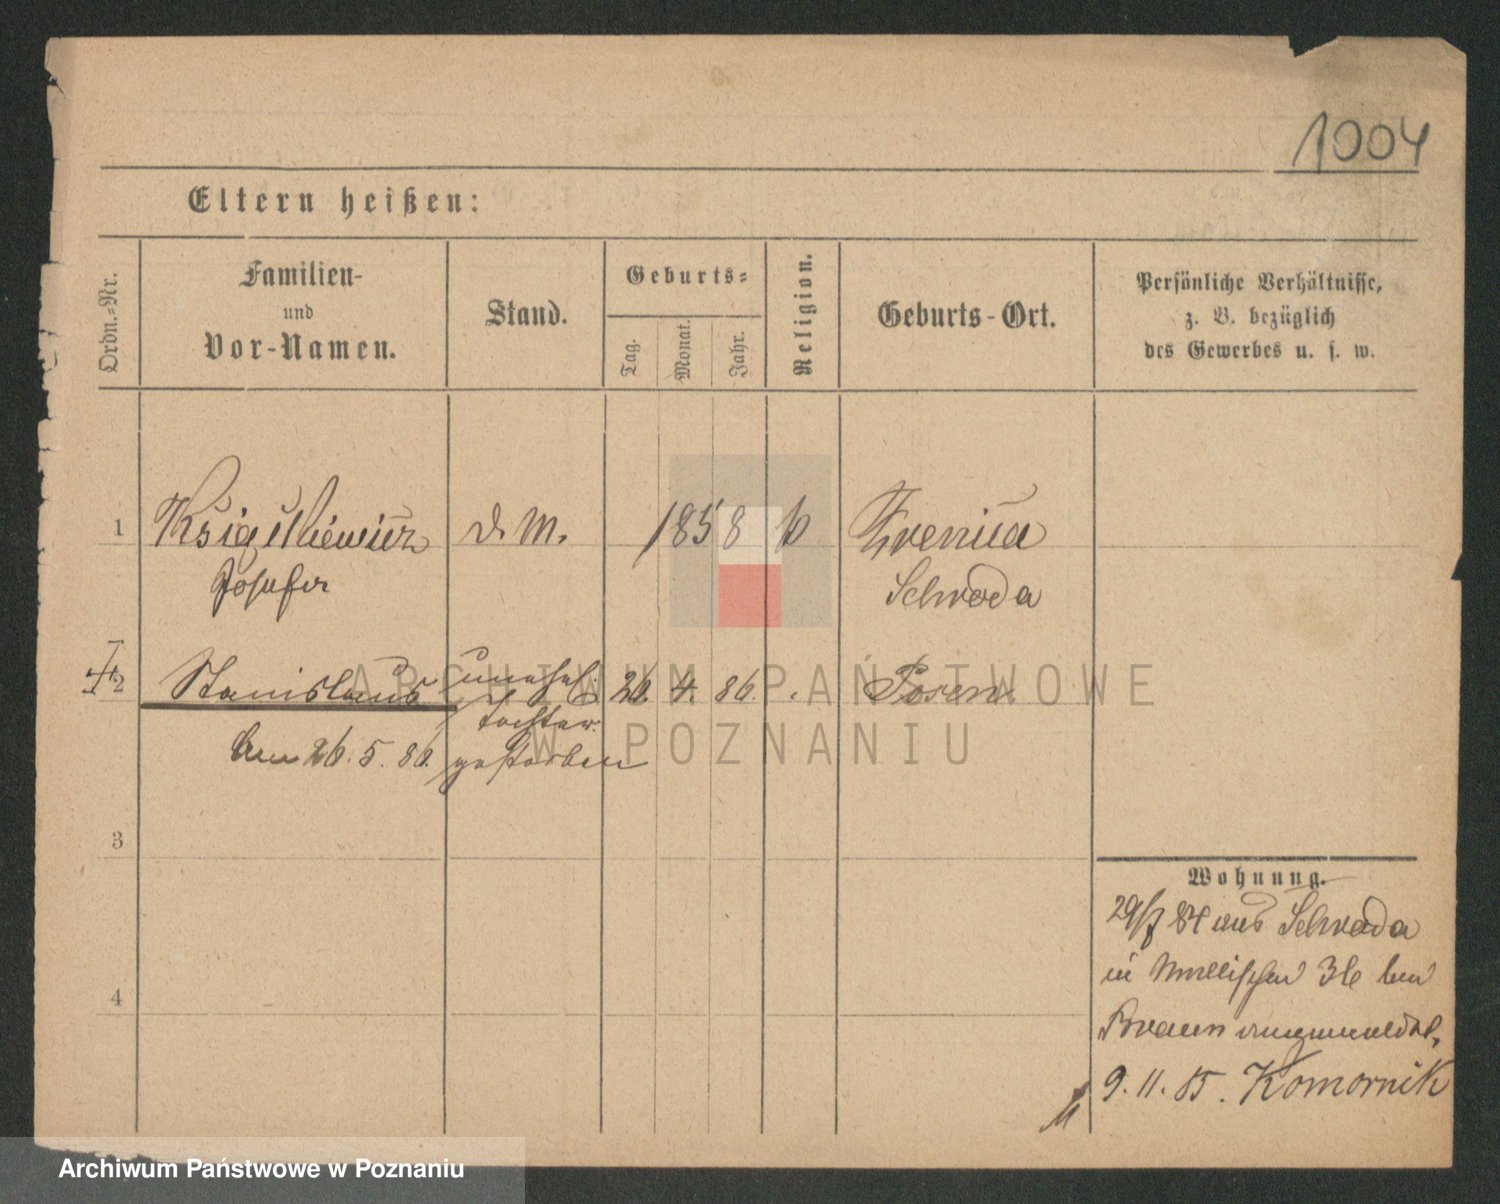 1004
Eltern heißen:
Ordn.-Nr.
Familien-
und
Vor-Namen.
Stand.
Geburts-
Tag.
Monat.
Jahr.
Religion.
Geburts-Ort.
Persönliche Verhältnisse,
z. B. bezüglich
des Gewerbes u. s. w.
1 d. M. 1858 k
Schroda
2 Stanislaus unehel. 26. 4. 86. Posen
Tochter
Am 26. 5. 86. gestorben
3
4
Wohnung.
29/7 84 aus Schroda
in 36 bei
Braun angemeldet,
9. 11. 85. Komornik
ARCHIWUM PAŃSTWOWE
W POZNANIU
Archiwum Państwowe w Poznaniu